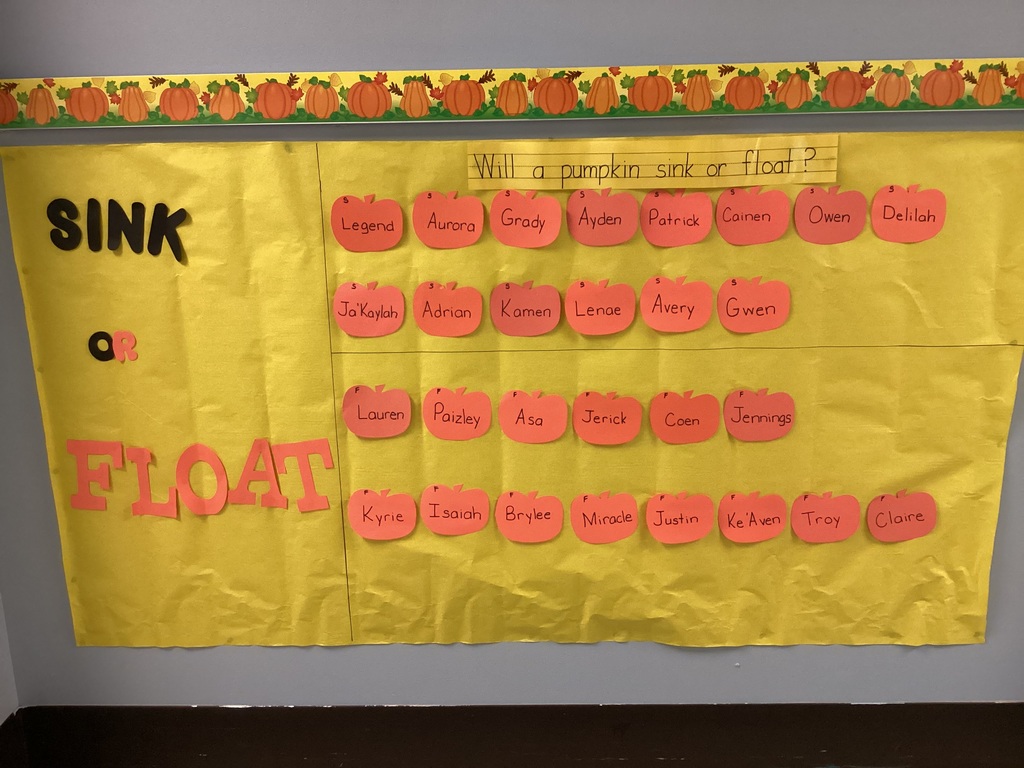 Will a pumpkin sink or float?
SINK
OR
FLOAT
S S S S S S S S
Legend Aurora Grady Ayden Patrick Cainen Owen Delilah
S S S S S S
Ja'Kaylah Adrian Kamen Lenae Avery Gwen
F F F F F F
Lauren Paizley Asa Jerick Coen Jennings
F F F F F F F F
Kyrie Isaiah Brylee Miracle Justin Ke'Aven Troy Claire